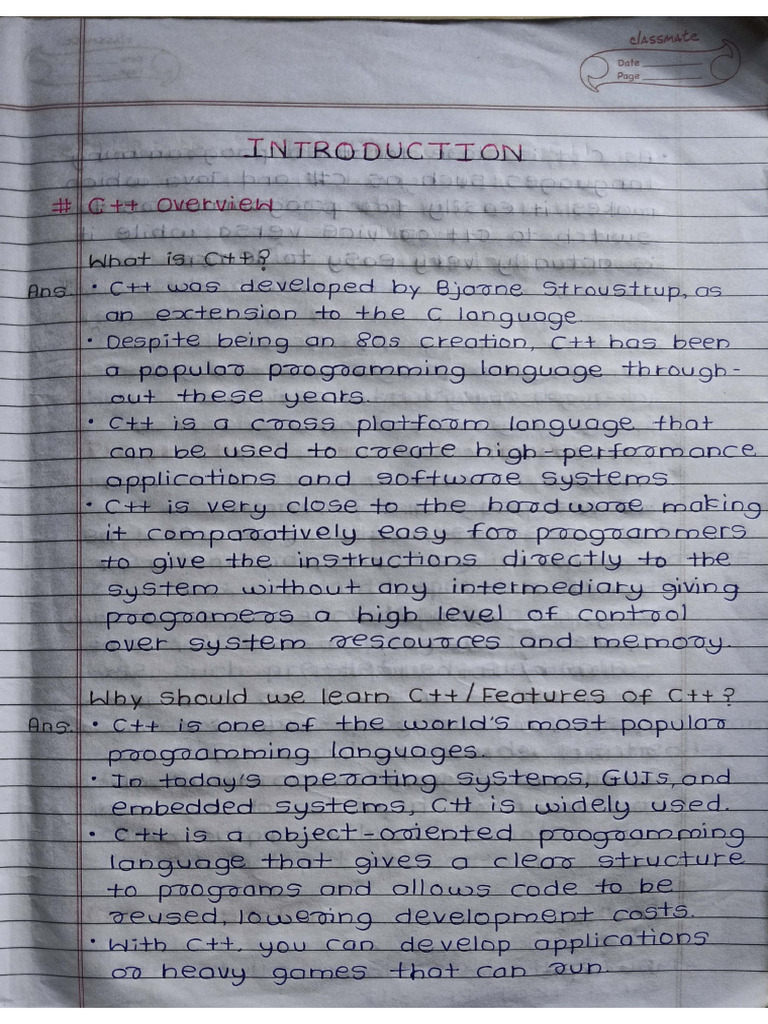 classmate
Date
Page
INTRODUCTION
# C++ Overview
What is C++?
Ans. • C++ was developed by Bjarne Stroustrup, as
an extension to the C language.
• Despite being an 80s creation, C++ has been
a popular programming language through-
out these years.
• C++ is a cross platform language that
can be used to create high-performance
applications and software systems.
• C++ is very close to the hardware making
it comparatively easy for programmers
to give the instructions directly to the
system without any intermediary giving
programers a high level of control
over system rescources and memory.
Why should we learn C++/Features of C++?
Ans. • C++ is one of the world's most popular
programming languages.
• In today's operating systems, GUIs, and
embedded systems, C++ is widely used.
• C++ is a object-oriented programming
language that gives a clear structure
to programs and allows code to be
reused, lowering development costs.
• With C++, you can develop applications
or heavy games that can run